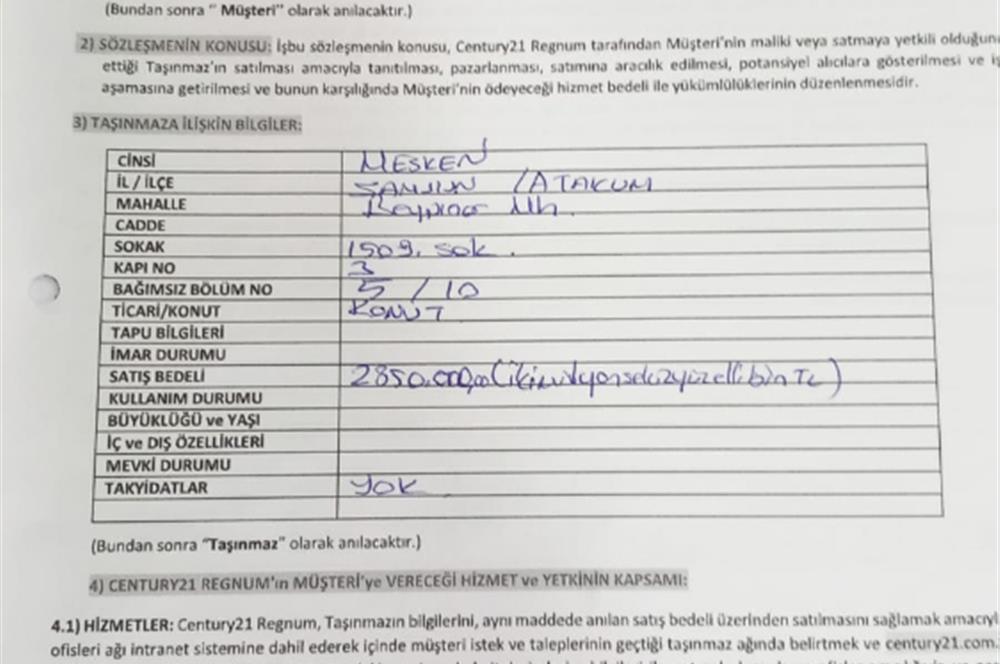 (Bundan sonra " Müşteri" olarak anılacaktır.)
2) SÖZLEŞMENİN KONUSU: İşbu sözleşmenin konusu, Century21 Regnum tarafından Müşteri'nin maliki veya satmaya yetkili olduğunu
ettiği Taşınmaz'ın satılması amacıyla tanıtılması, pazarlanması, satımına aracılık edilmesi, potansiyel alıcılara gösterilmesi ve iş
aşamasına getirilmesi ve bunun karşılığında Müşteri'nin ödeyeceği hizmet bedeli ile yükümlülüklerinin düzenlenmesidir.
3) TAŞINMAZA İLİŞKİN BİLGİLER:
CİNSİ MESKEN
İL / İLÇE SAMSUN / ATAKUM
MAHALLE Mh.
CADDE
SOKAK 1509. sok.
KAPI NO 3
BAĞIMSIZ BÖLÜM NO 5 / 10
TİCARİ/KONUT KONUT
TAPU BİLGİLERİ
İMAR DURUMU
SATIŞ BEDELİ 2850.000,00 (ikimilyonsekizyüzellibin TL)
KULLANIM DURUMU
BÜYÜKLÜĞÜ ve YAŞI
İÇ ve DIŞ ÖZELLİKLERİ
MEVKİ DURUMU
TAKYİDATLAR YOK
(Bundan sonra "Taşınmaz" olarak anılacaktır.)
4) CENTURY21 REGNUM'ın MÜŞTERİ'ye VERECEĞİ HİZMET ve YETKİNİN KAPSAMI:
4.1) HİZMETLER: Century21 Regnum, Taşınmazın bilgilerini, aynı maddede anılan satış bedeli üzerinden satılmasını sağlamak amacıyl
ofisleri ağı intranet sistemine dahil ederek içinde müşteri istek ve taleplerinin geçtiği taşınmaz ağında belirtmek ve century21.com.